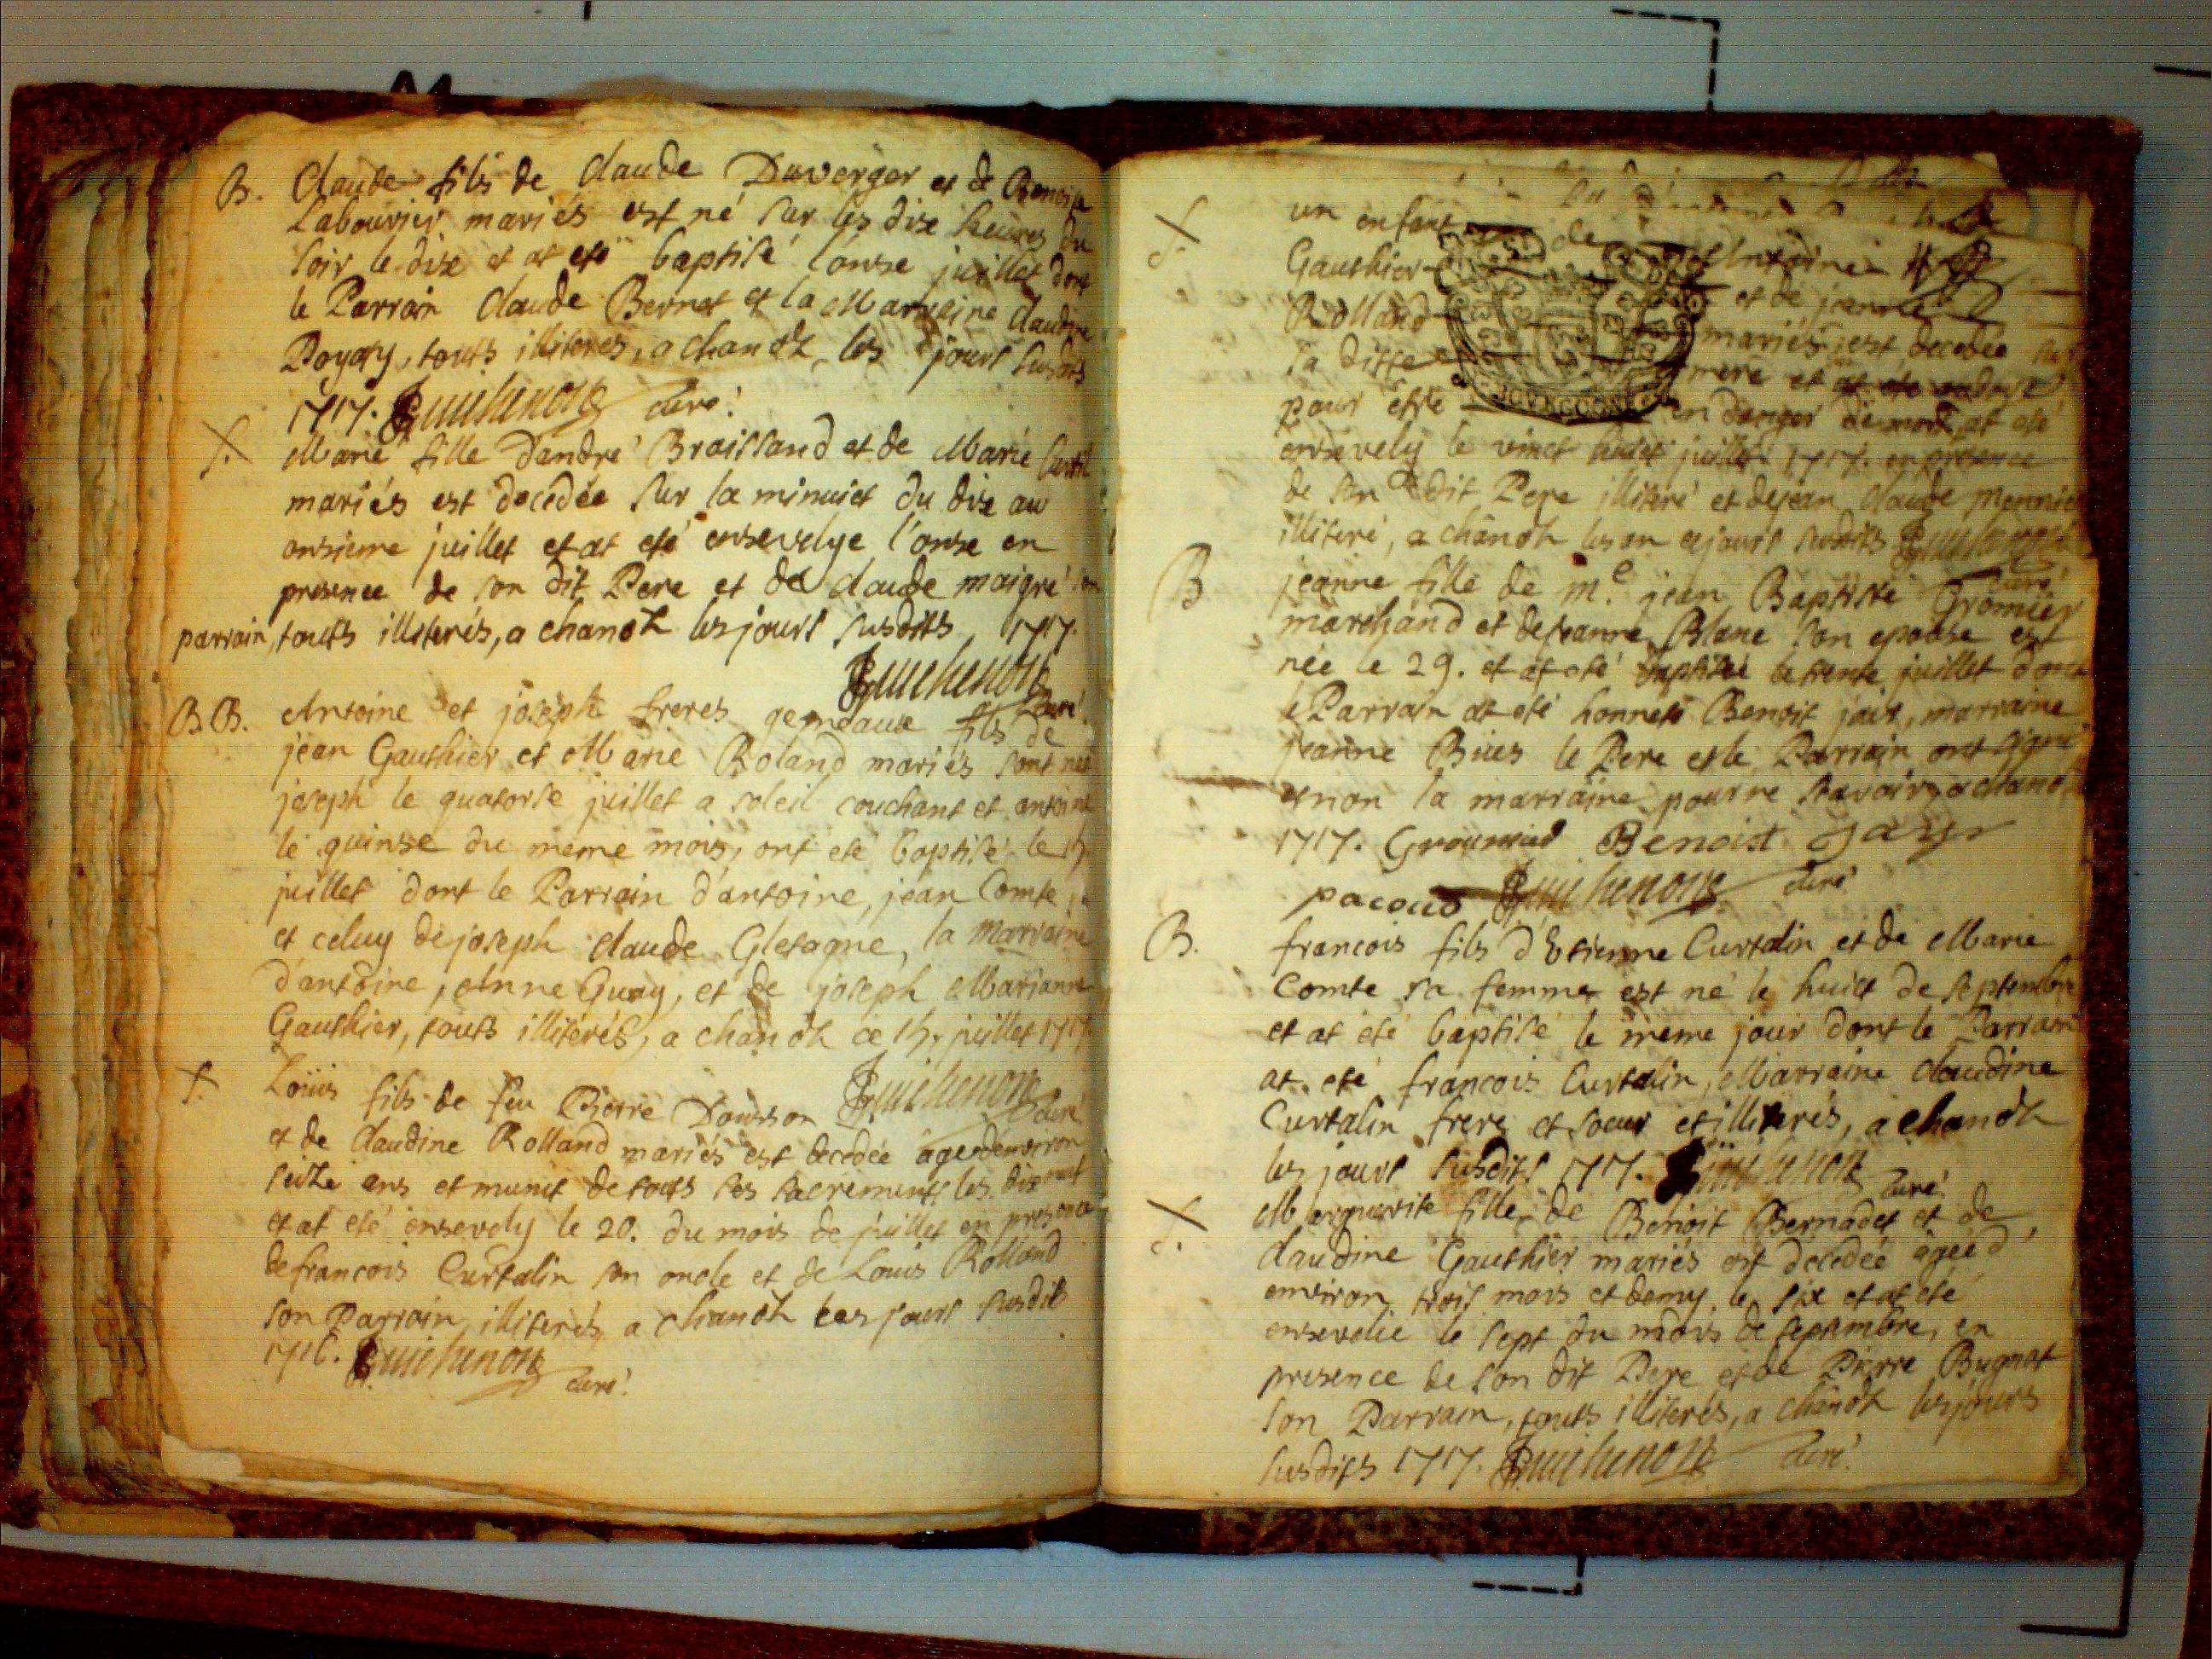 B. Claude fils de Claude Duverger et de Benoite
Labourier mariés est né sur les dix heures du
soir le dix et at eté baptisé l'onse juillet dont
le Parrain Claude Bernet et la Marraine Claudine
touts illiterés, a chanoz les jours susdits
1717. Guichenon curé.
S. Marie fille d'andré Braissand et de Marie
mariés est decedée sur la minuict du dix au
onsieme juillet et at eté ensevelye l'onse en
presence de son dit Pere et de claude maigre son
parrain, touts illiterés, a chanoz les jours susdits 1717.
Guichenon curé.
B.B. Antoine et joseph freres gemeaux fils de
jean Gauthier et Marie Roland mariés sont nés
joseph le quatorse juillet a soleil couchant et antoine
le quinse du meme mois, ont eté baptisé le 15
juillet dont le Parrain d'antoine, jean Comte
et celuy de joseph claude Gletagne, la Marraine
d'antoine, Anne Guay, et de joseph Marianne
Gauthier, touts illiterés, a chanoz ce 15. juillet 1717
Guichenon curé
S. Loüis fils de feu Pierre
et de Claudine Rolland mariés est decedée agé d'environ
seize ans et munit de touts ses sacrements les dix neuf
et at eté ensevely le 20. du mois de juillet en presence
de francois Curtalin son oncle et de Louis Rolland
son Parrain, illiterés, a chanoz les jours susdits
1716. Guichenon curé.
S. un enfant de Antoine
Gauthier et de jeanne
Rolland mariés, est decedée sur
la ditte mere et at eté ondoyé
pour estre en danger de mort, at eté
ensevely le vinct huict juillet 1717. en presence
de son dit Pere illiteré et de jean claude
illiteré, a chanoz les an et jours susdits Guichenon
curé.
B jeanne fille de me. jean Baptiste Gromier
marchand et de jeanne Blanc son epouse est
née le 29. et at eté baptisée le trente juillet dont
le Parrain at eté honneste Benoit jair, marraine
jeanne le Pere et le Parrain ont signé
et non la marraine pour ne sçavoir, a chanoz
1717. Benoist Jayr
pacoud Guichenon curé.
B. francois fils d'Etienne Curtalin et de Marie
Comte sa femme est né le huict de septembre
et at eté baptisé le meme jour dont le Parrain
at eté francois Curtalin, Marraine Claudine
Curtalin frere et soeur et illiterés, a chanoz
les jours susdits 1717. Guichenon curé.
S. Marguerite fille de Benoit Bernadet et de
claudine Gauthier mariés est decedée âgée d'
environ trois mois et demy, le six et at eté
ensevelie le sept du mois de septembre, en
presence de son dit Pere et de Pierre Bugnot
son Parrain, touts illiterés, a chanoz les jours
susdits 1717. Guichenon curé.